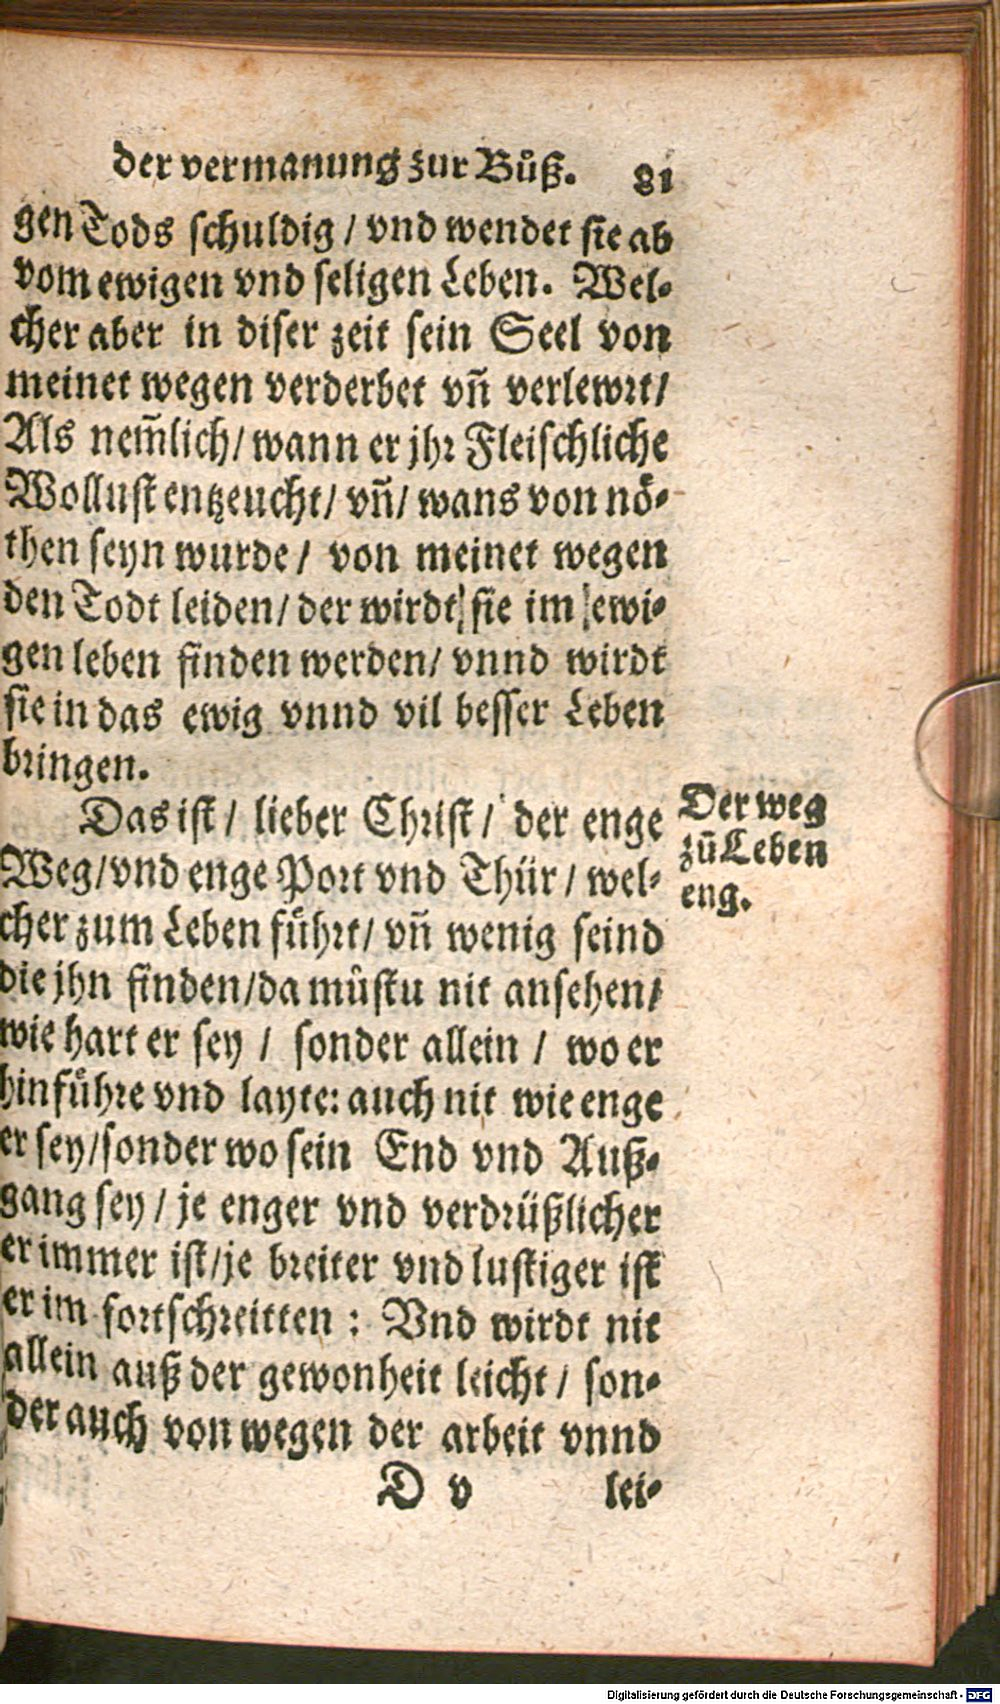 der vermanung zur Bůß. 81
gen Tods schuldig / vnd wendet sie ab
vom ewigen vnd seligen Leben. Wel-
cher aber in diser zeit sein Seel von
meinet wegen verderbet vñ verlewrt/
Als nem̃lich/ wann er jhr Fleischliche
Wollust entzeucht/ vñ/ wans von nö-
then seyn wurde / von meinet wegen
den Todt leiden/ der wirdt sie im ewi-
gen leben finden werden/ vnnd wirdt
sie in das ewig vnnd vil besser Leben
bringen.
Das ist / lieber Christ / der enge
Weg/vnd enge Port vnd Thür / wel-
cher zum Leben führt/ vñ wenig seind
die jhn finden/da můstu nit ansehen/
wie hart er sey / sonder allein / wo er
hinführe vnd layte: auch nit wie enge
er sey/sonder wo sein End vnd Auß-
gang sey / je enger vnd verdrüßlicher
er immer ist/je breiter vnd lustiger ist
er im fortschreitten : Vnd wirdt nit
allein auß der gewonheit leicht / son-
der auch von wegen der arbeit vnnd
D v lei-
Der weg
zů Leben
eng.
Digitalisierung gefördert durch die Deutsche Forschungsgemeinschaft - DFG